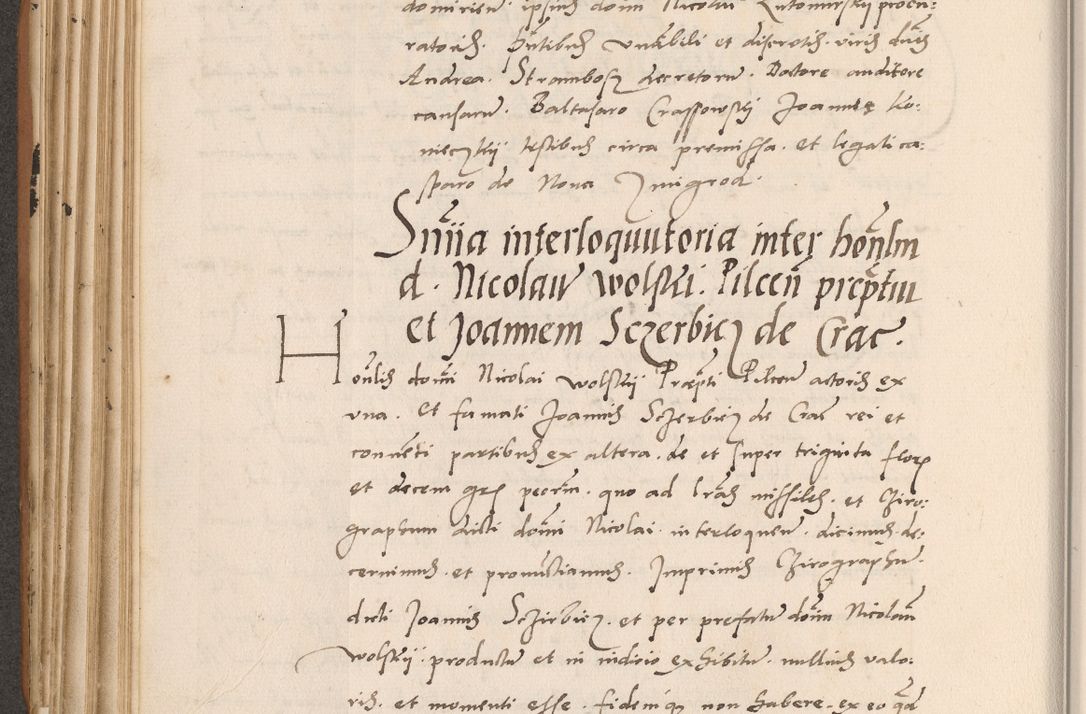 domicilii ipsius domini Nicolai Lutomirskij procu:
ratoris. Pñtibus venlibili et discretis. viris dnis
Andrea. Strambosz decretorum. Doctore auditore
causarum. Baltasaro Crassowskij Joannes Ko:
nieczkij testibus circa premissa. et legati ca:
sparo de Nova Zmigrod.
Snnia interloquutoria inter honlm
d. Nicolaum Wolskii. Pilcen prepntum
et Joannem Sczerbicz de Crac.
Honlis domini Nicolai wolskij Præpti Pilcen actoris ex
una. Et famati Joannis Sczerbicz de Crac rei et
conventi partibus ex altera. de et super triginta flor
et decem gros pecorm. quo ad lras missiles. et Chiro:
graphum dicti domini Nicolai. interloquen. dicimus de:
cernimus. et pronunctiamus. Imprimis Chirographum.
dicti Joannis Sczirbicz. et per prefatum domin Nicolaum
Wolskij. productum et in iudicio exhibitum. nullius valo:
ris. et momenti esse. fidemque non habere. ex eo quod